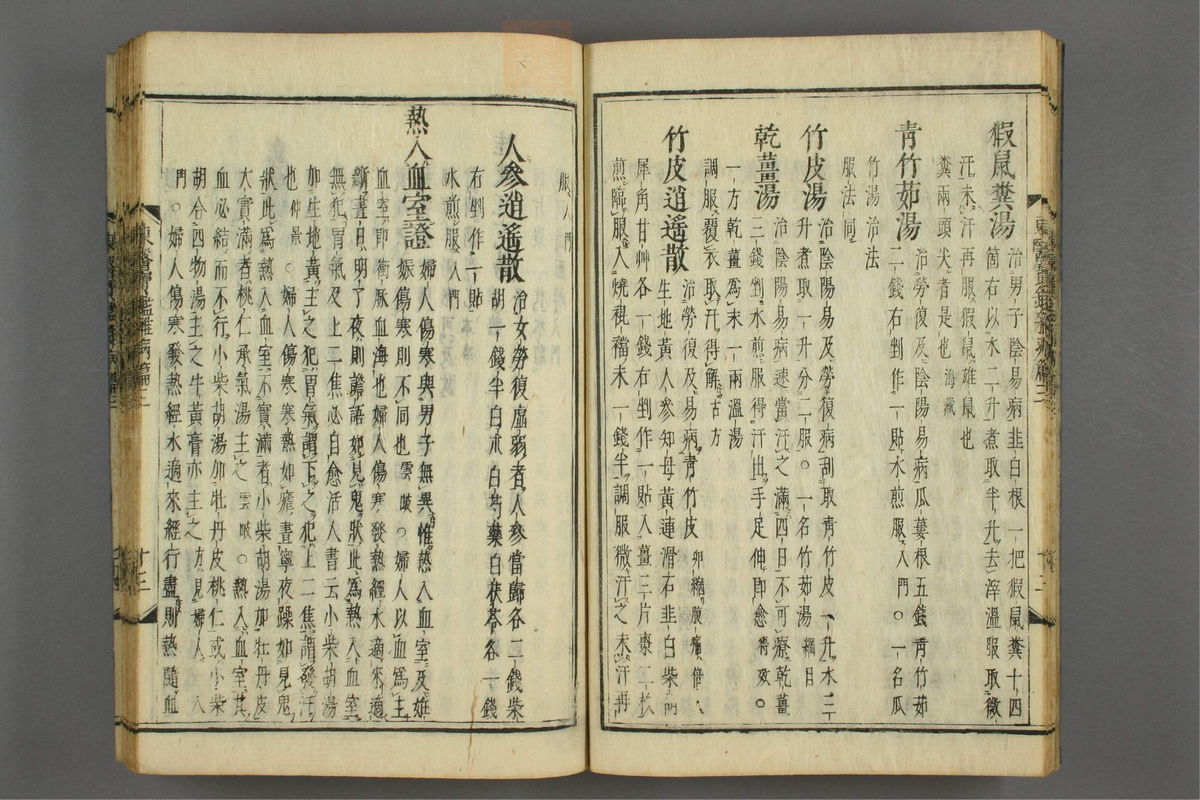 猳鼠糞湯 治男子陰易病韭白根一把猳鼠糞十四
箇右以水二升煮取半升去滓溫服取微
汗未汗再服猳鼠雄鼠也
糞兩頭尖者是也 海藏
青竹茹湯 治勞復及陰陽易病瓜蔞根五錢青竹茹
二錢右剉作一貼水煎服入門○一名瓜
竹湯治法
服法同
竹皮湯 治陰陽易及勞復病刮取青竹皮一升水三
升煮取一升分二服○一名竹茹湯 綱目
乾薑湯 治陰陽易病速當汗之滿四日不可療乾薑
三錢剉水煎服得汗出手足伸即愈 得效○
一方乾薑爲末一兩溫湯
調服覆衣取汗得解 古方
竹皮逍遙散 治勞復及易病青竹皮 卵縮腹痛倍入
生地黃人參知母黃連滑石韭白柴胡
犀角甘艸各一錢右剉作一貼入薑三片棗二枚
煎臨服入燒裩襠末一錢半調服微汗之未汗再
服 入門
人參逍遙散 治女勞復虛弱者人參當歸各二錢柴
胡一錢半白朮白芍藥白茯苓各一錢
右剉作一貼
水煎服 入門
熱入血室證 婦人傷寒與男子無異惟熱入血室及姙
娠傷寒則不同也 雲岐○婦人以血爲主
血室即衝脉血海也婦人傷寒發熱經水適來適
斷晝日明了夜則譫語如見鬼狀此爲熱入血室
無犯胃氣及上二焦必自愈活人書云小柴胡湯
加生地黃主之犯胃氣謂下之犯上二焦謂發汗
也 仲景○婦人傷寒寒熱如瘧晝寧夜躁如見鬼
狀此爲熱入血室不實滿者小柴胡湯加牡丹皮
大實滿者桃仁承氣湯主之 雲岐○熱入血室其
血必結而不行小柴胡湯加牡丹皮桃仁或小柴
胡合四物湯主之牛黃膏亦主之 方見婦人 入
門○婦人傷寒發熱經水適來經行盡則熱隨血
東醫寶鑑雜病篇三